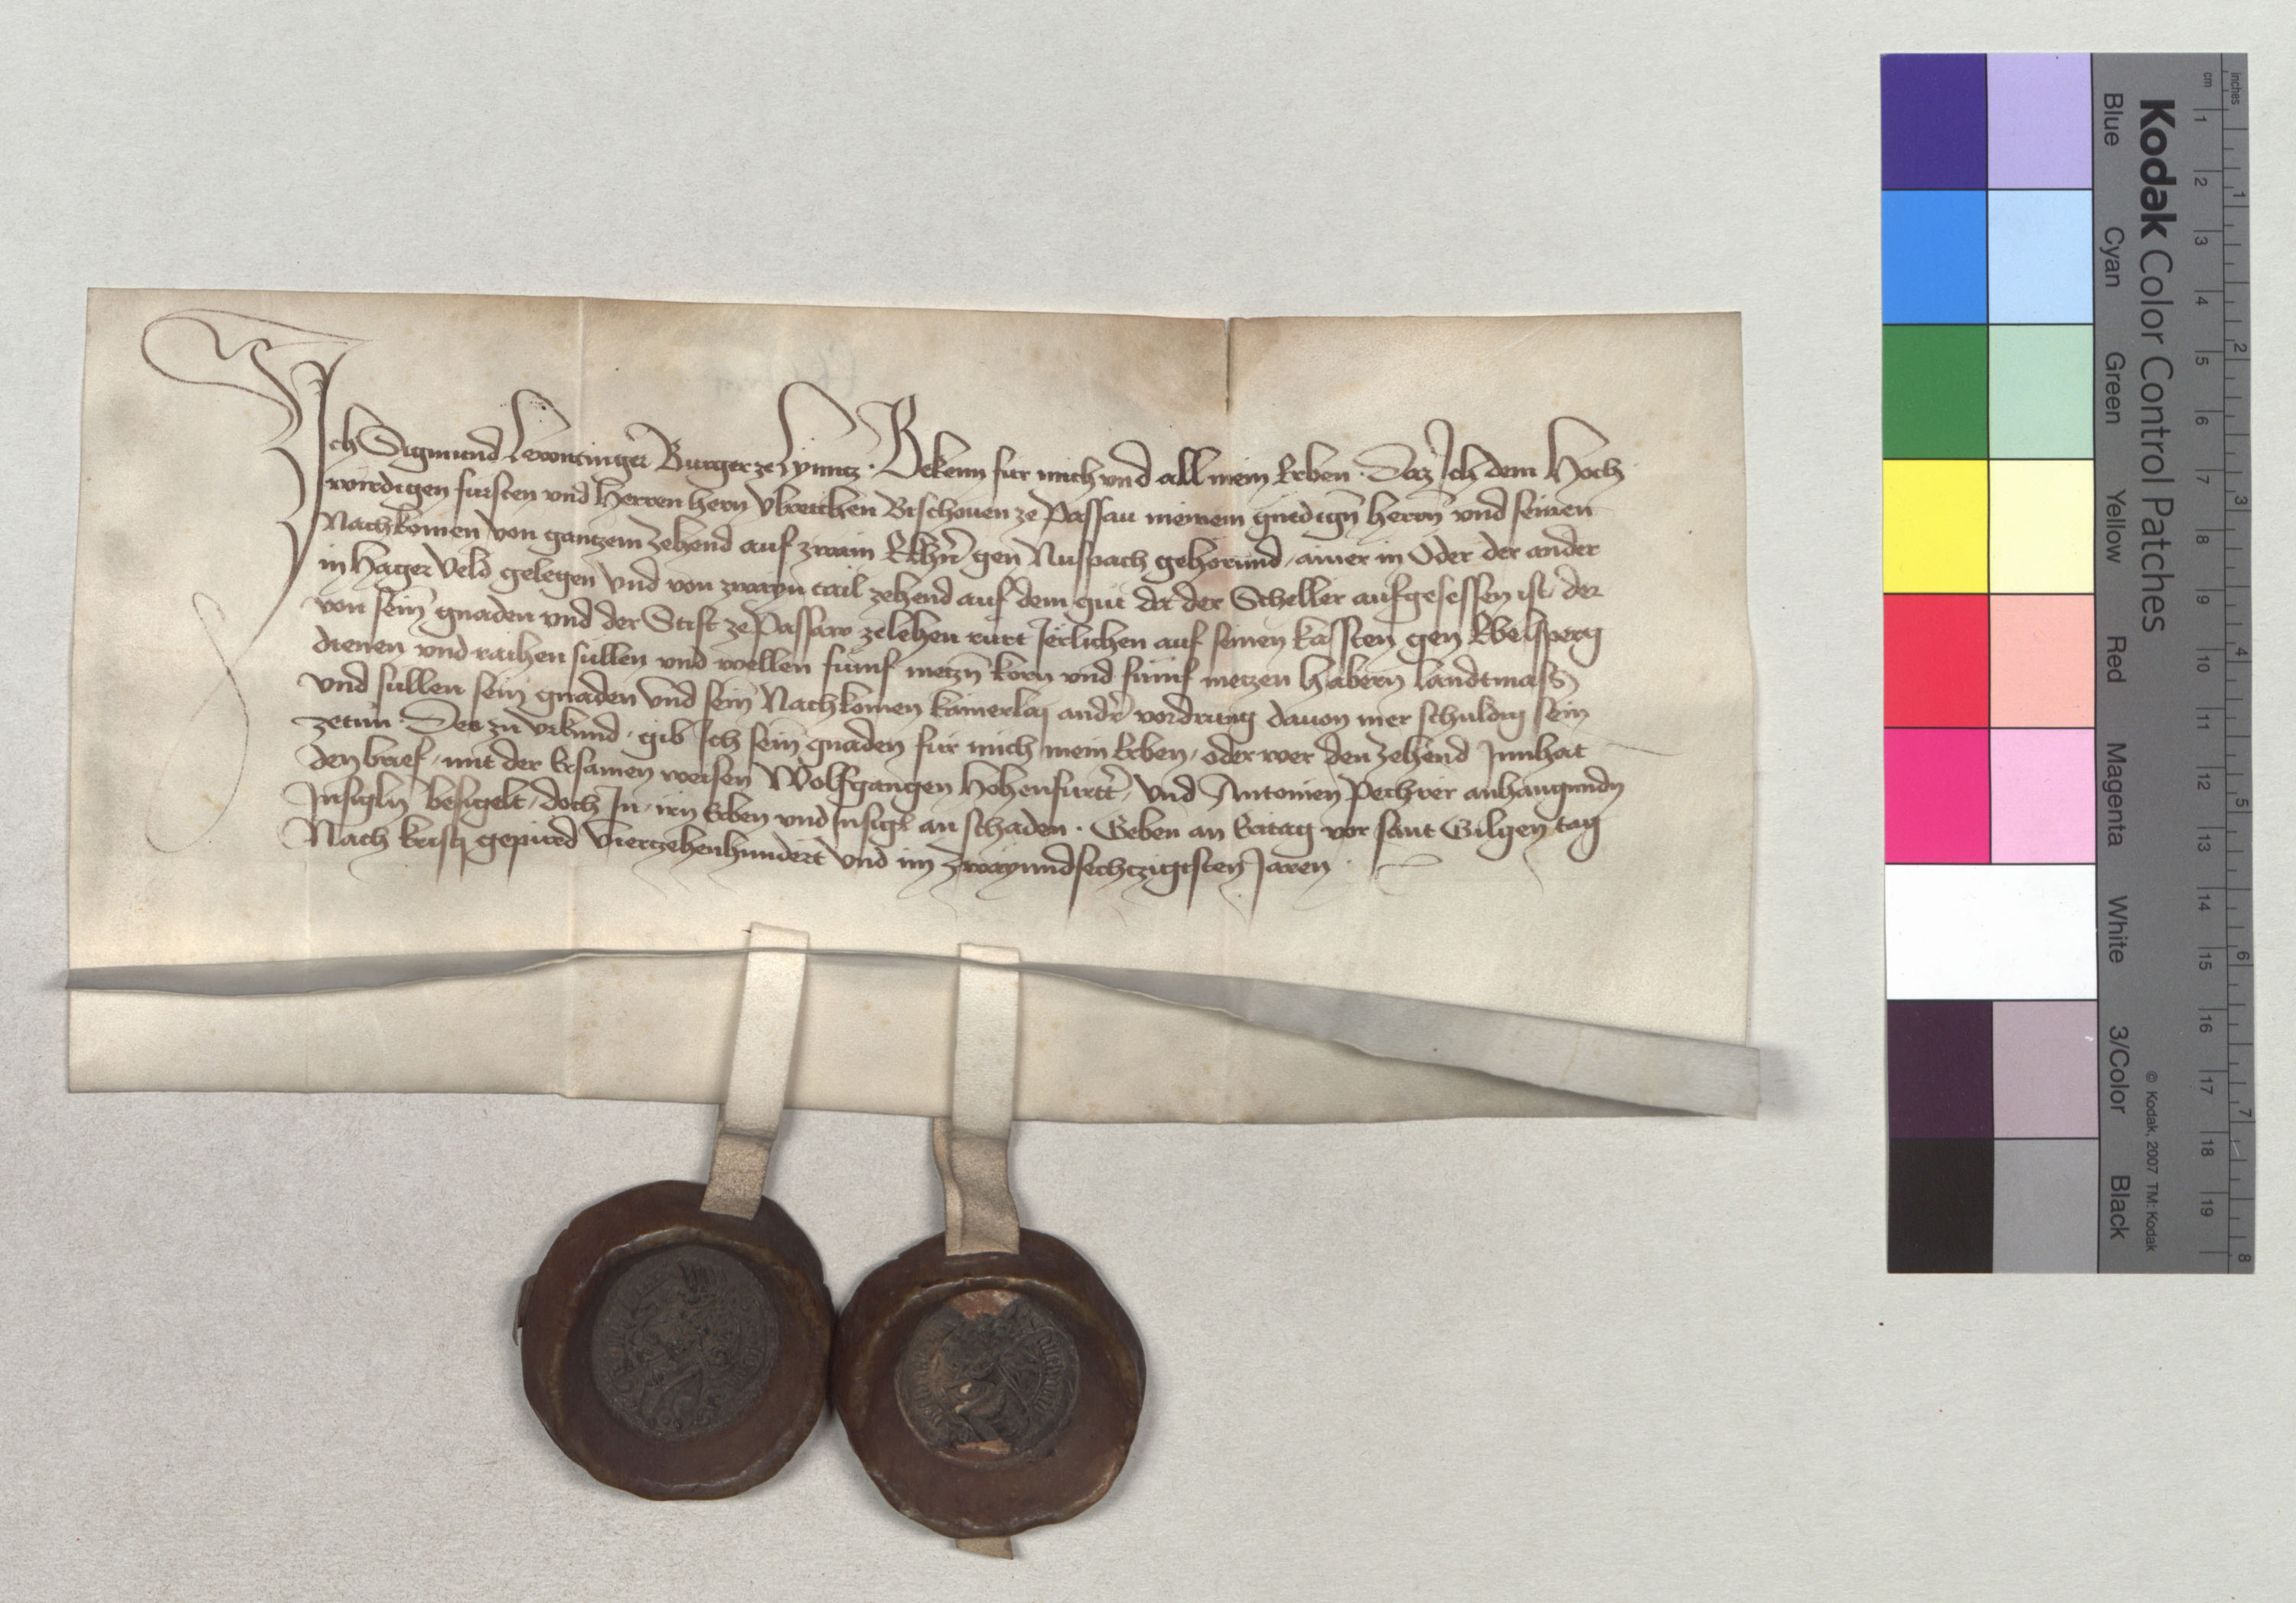 Ich Sigmund Lewntinger Burger ze Lynntz · Bekenn fur mich vnd all mein Erben · Daz Ich dem Hoch
wirdigen fursten vnd Herren hern Vlreichen Bischouen ze Passau meinem gnedign̄ herrn̄ vnd seinen
Nachkomen von gantzem zehend auf zwain gen Nuspach gehorund / ainer in Oder der ander
in Hager Veld gelegen vnd von zwayn tail zehend auf dem gut da der Scheller aufgesessen ist / der
von sein̄ gnaden vnd der Stift ze Passaw ze lehen rurt Jerlichen auf seinen kassten gen Welsperg
dienen vnd raihen sullen vnd wellen funnf metzn̄ korn vnd funnf metzen habern landtmass
vnd sullen sein̄ gnaden vnd sein̄ Nachkomen kainerlay andr̄ vordrung dauon mer schuldig sein
zetun · Des zu vrkund · gib Ich sein̄ gnaden fur mich mein Erben / oder wer den zehend Innhat
den brief / mit der Ersamen weisen Wolfgangen Hohenfurtr̄ / vnd Antonien anhangundn
Insigln besigelt / doch In / irn Erben vnd Insigl an schaden · Geben an Eritag vor sant Gilgen tag
Nach kristj gepurd Viertzehenhundert vnd im zwayundsechtzigisten Jaren ·
Kodak Color Control Patches
Blue Cyan Green Yellow Red Magenta White 3/Color Black
© Kodak, 2007 TM: Kodak
cm 1 2 3 4 5 6 7 8 9 10 11 12 13 14 15 16 17 18 19
inches 1 2 3 4 5 6 7 8